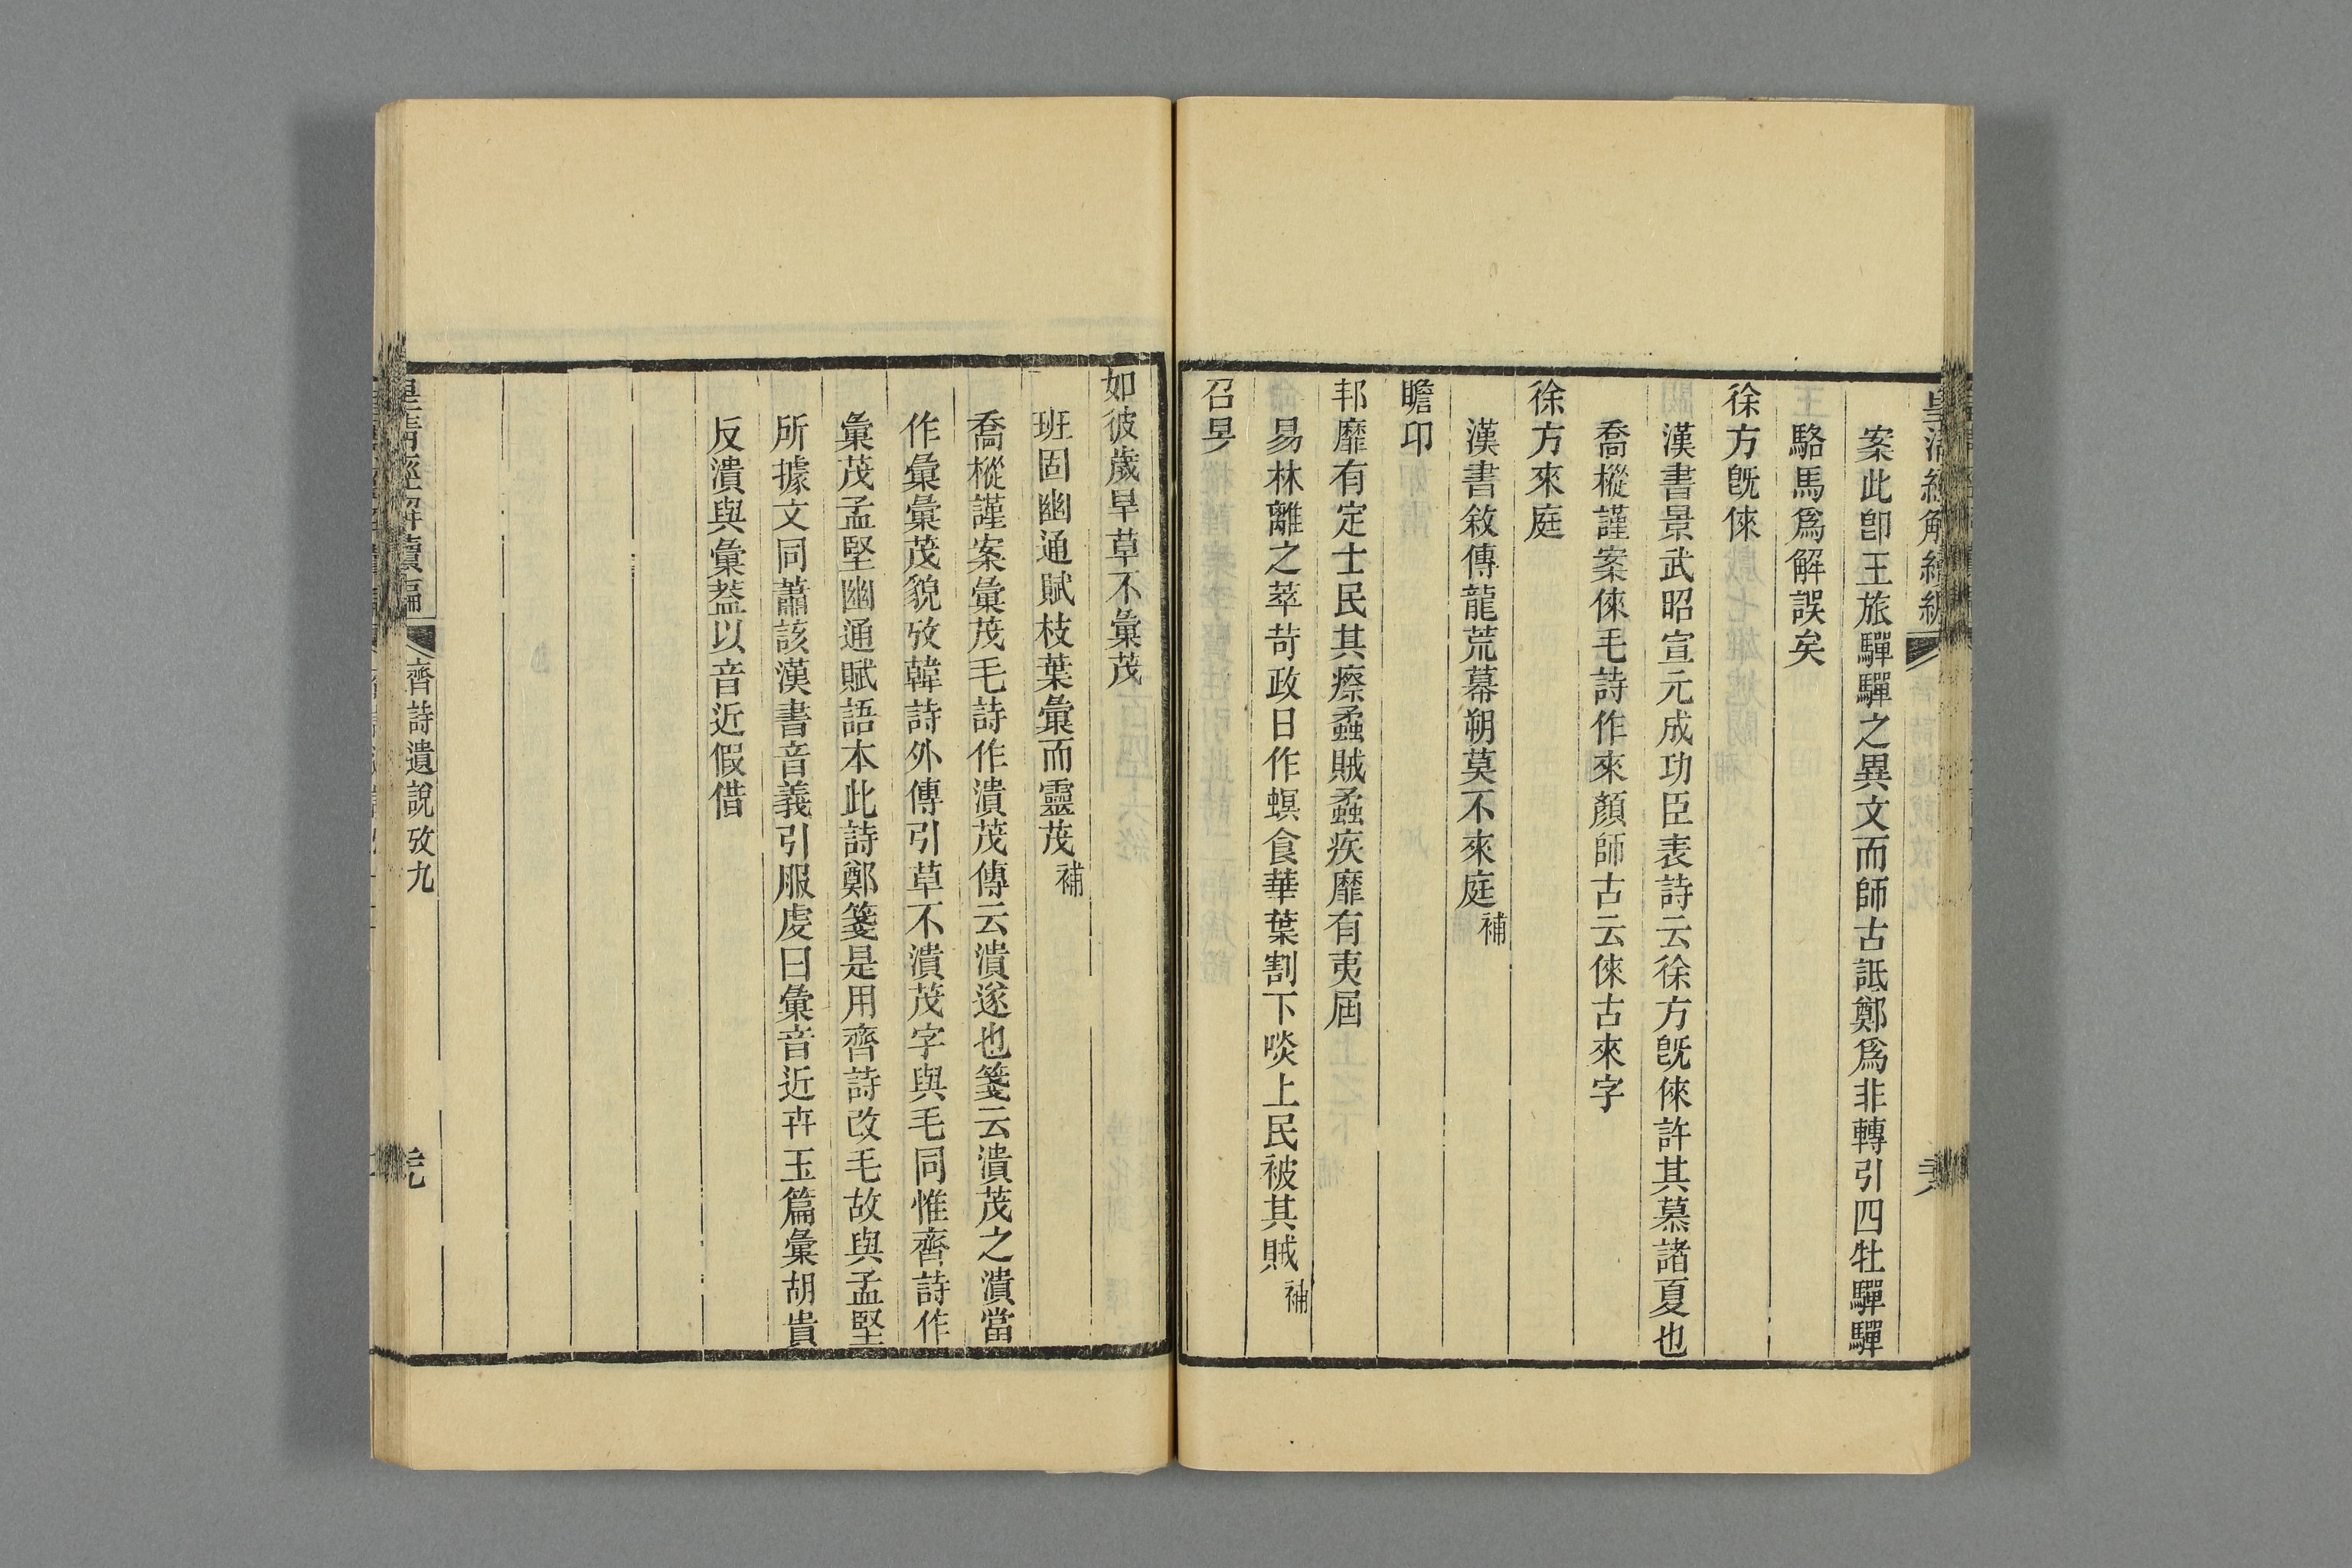 案此卽王旅驒驒之異文而師古詆鄭爲非轉引四牡驒驒
駱馬爲解誤矣
徐方旣倈
漢書景武昭宣元成功臣表詩云徐方旣倈許其慕諸夏也
喬樅謹案倈毛詩作來顏師古云倈古來字
徐方來庭
漢書敘傳龍荒幕朔莫不來庭補
瞻卬
邦靡有定士民其瘵蟊賊蟊疾靡有夷屆
易林離之萃苛政日作螟食華葉割下啖上民被其賊補
召旻
如彼歲旱草不彙茂
班固幽通賦枝葉彙而靈茂補
喬樅謹案彙茂毛詩作潰茂傳云潰遂也箋云潰茂之潰當
作彙彙茂貌攷韓詩外傳引草不潰茂字與毛同惟齊詩作
彙茂孟堅幽通賦語本此詩鄭箋是用齊詩改毛故與孟堅
所據文同蕭該漢書音義引服虔曰彙音近卉玉篇彙胡貴
反潰與彙葢以音近假借
皇清經解續編
齊詩遺說攷九